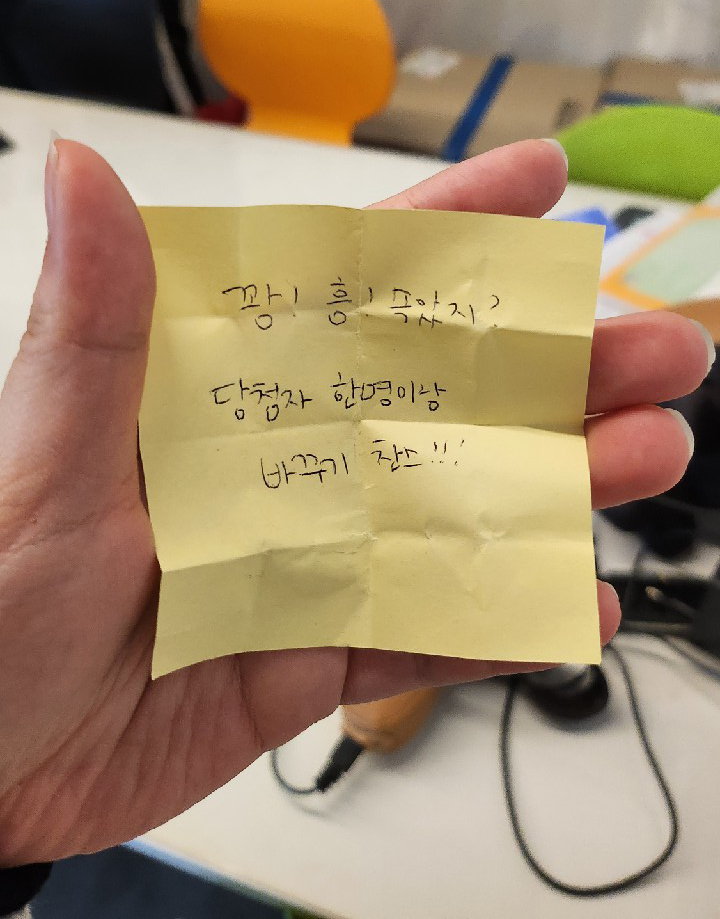 꽝! 흥! 속았지?
당첨자 한명이상
바꾸기 찬스!!!